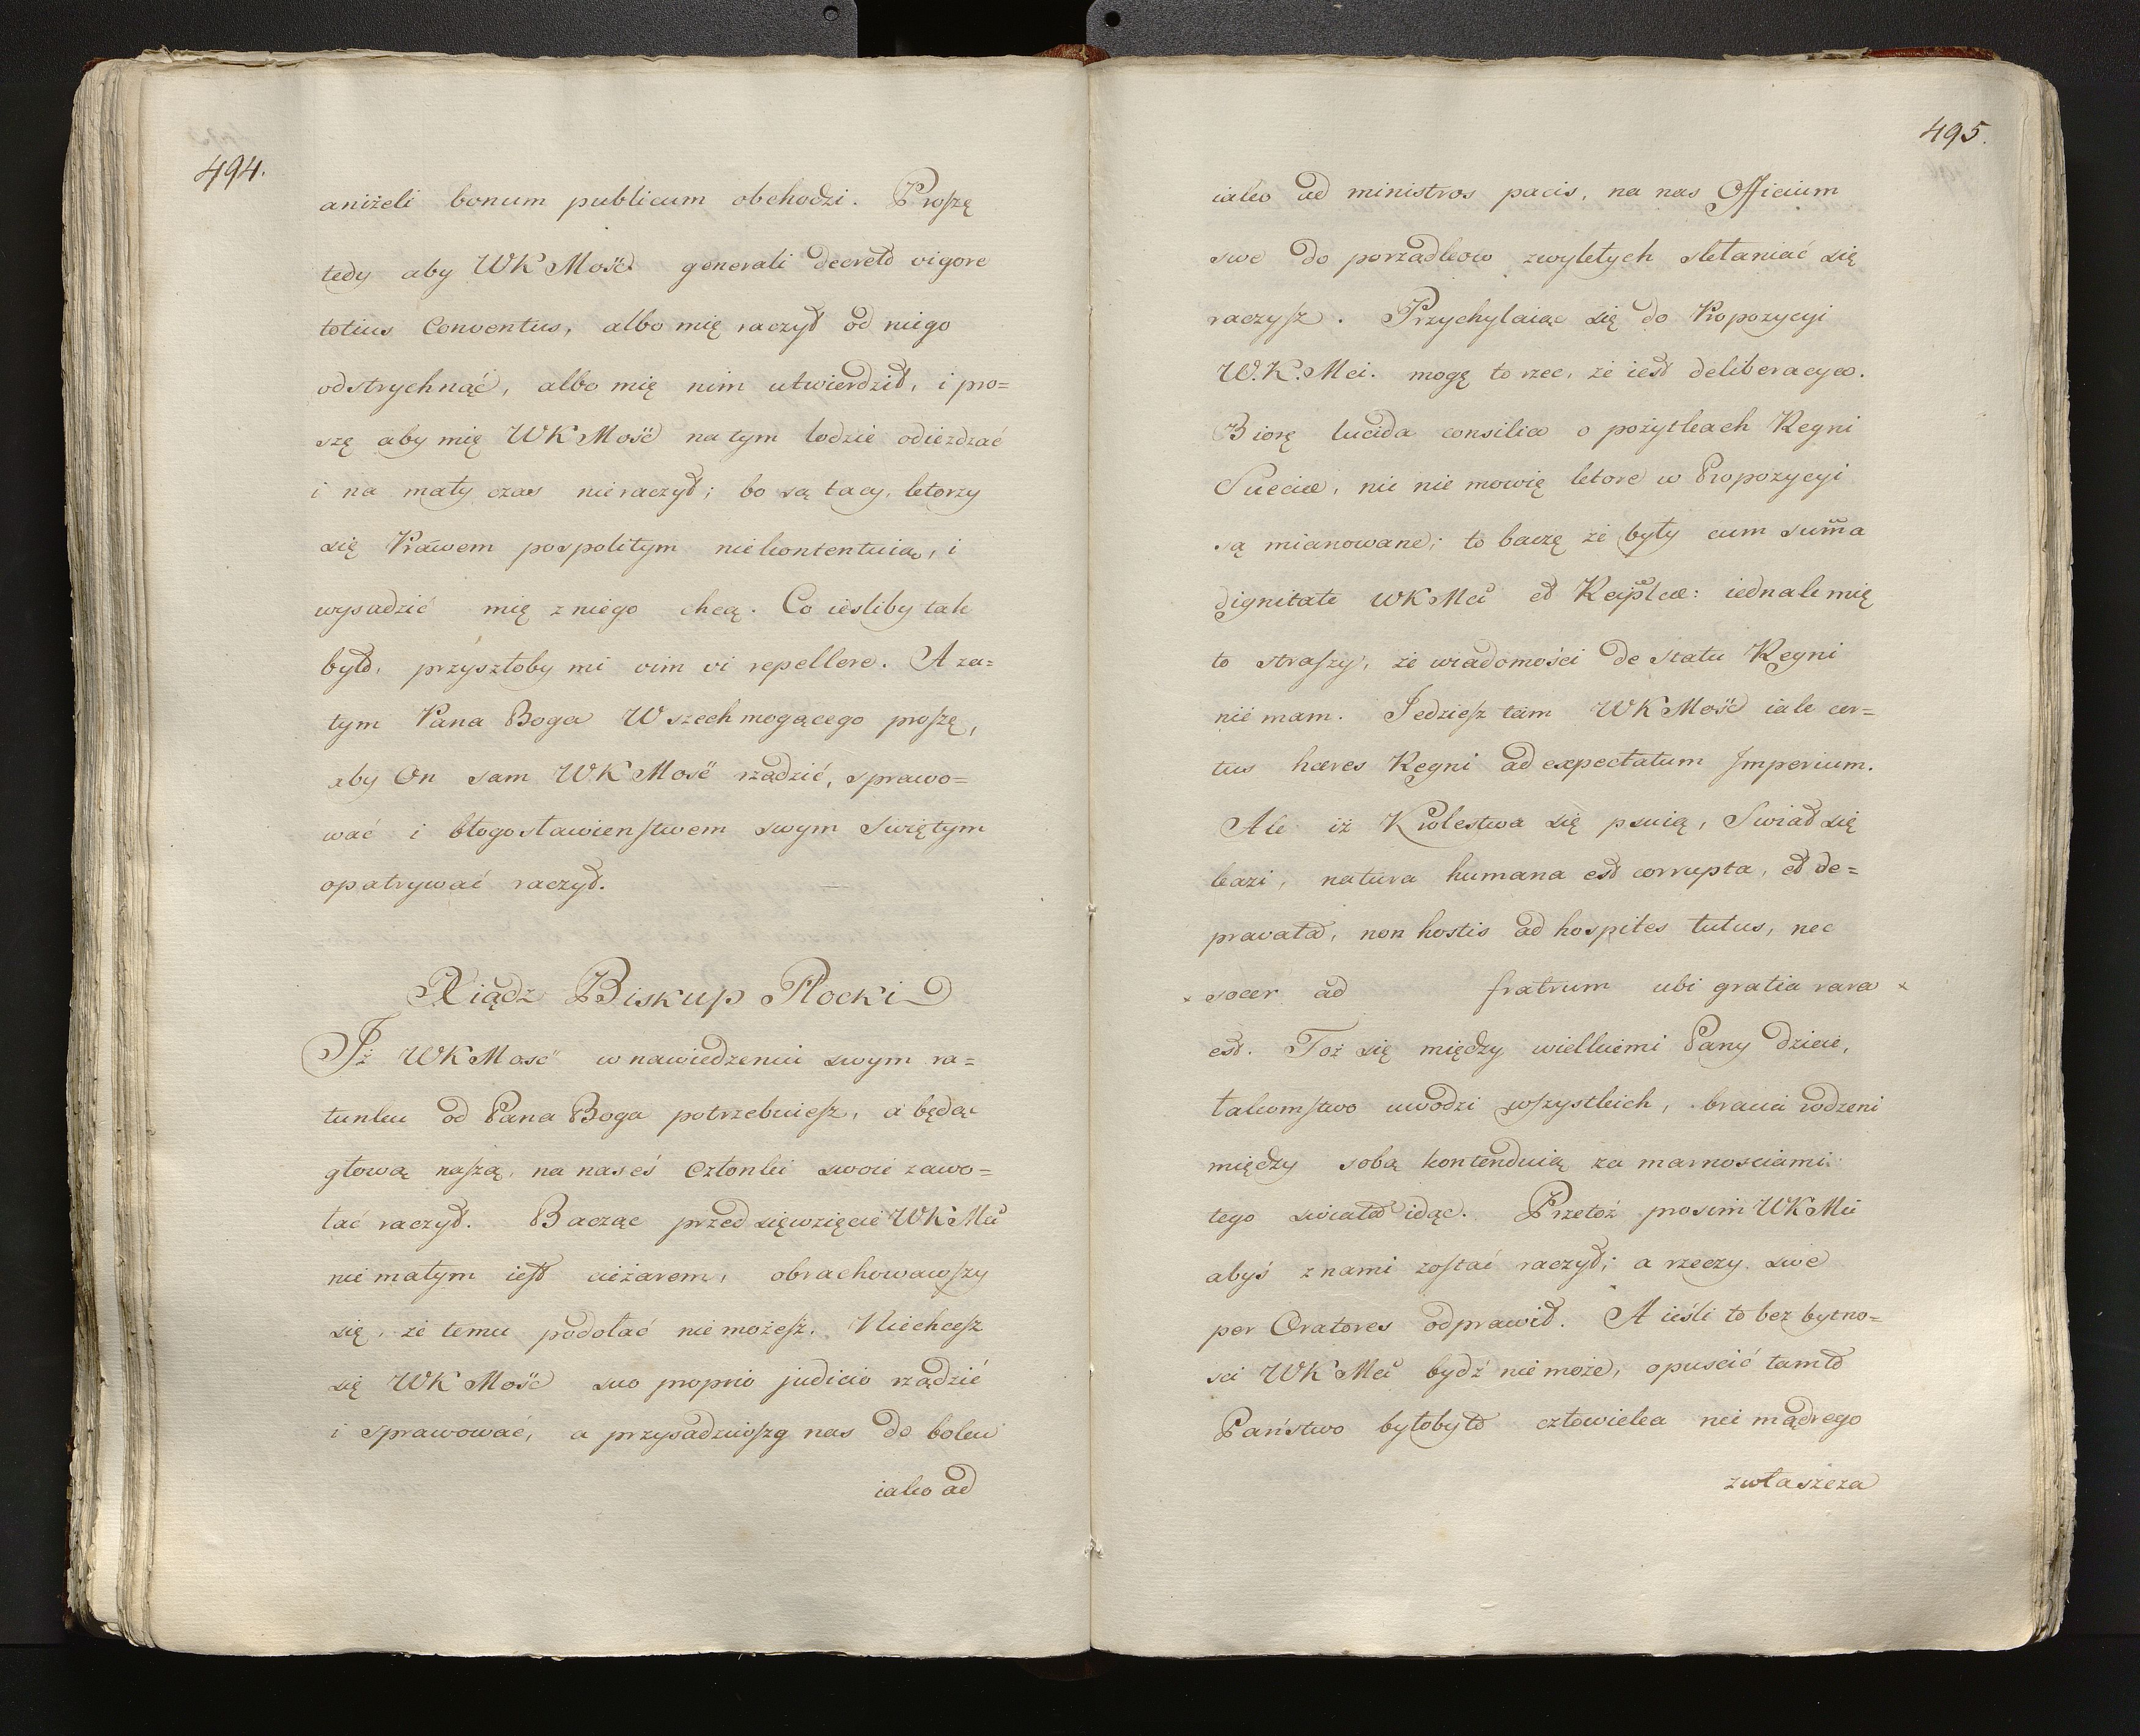 494.
aniżeli bonum publicum obchodzi. Proszę
tedy aby WK Mość generali decreto vigore
totius Conventus, albo mię raczył od niego
odstrychnąć, albo mię nim utwierdził, i pro=
szę aby mię WK Mość na tym lodzie odieżdzać
i na mały czas nieraczył; bo są tacy, ktorzy
się Prawem pospolitym niekontentuią, i
wysadzić mię z niego chcą. Co iesliby tak
było, przyszłoby mi vim vi repellere. A za=
tym Pana Boga Wszechmogącego proszę,
aby On sam WK Mość rządzić, sprawo=
wać i błogosławienstwem swym Swiętym
opatrywać raczył.
Xiądz Biskup Płocki
Iż WK Mosć w nawiedzeniu swym ra=
tunku od Pana Boga potrzebuiesz, a będąc
głową naszą, na naseś Członki swoie zawo=
łać raczył. Bacząc przedsięwzięcie WK Mci
nie małym iest cieżarem, obrachowawszy
się, że temu podołać nie możesz. Niechcesz
się WK Mość suo proprio judicio rządzić
i sprawować, a przysadziwszy nas do boku
iako ad
495.
iako ad ministros pacis, na nas Officium
swe do porządkow zwykłych skłaniać się
raczysz. Przychylaiąc się do Propozycyi
W.K.Mci. mogę to rzec, że iest deliberacya.
Biorę lucida consilia o pożytkach Regni
Sueciæ, nic nie mowię ktore w Propozycyi
są mianowane; to baczę że były cum suma
dignitate WK Mci et Reiplcæ: iednak mię
to straszy, że wiadomości de statu Regni
nie mam. Jedziesz tam WK Mość iak cer=
tus hæres Regni ad expectatum Imperium.
Ale iż Krolestwa się psuią, Swiat się
kazi, natura humana est corrupta, et de=
pravata, non hostis ad hospites tutus, nec
× socer ad fratrum ubi gratia rara ×
est. Toż się między wielkiemi Pany dzieie,
łakomstwo uwodzi wszystkich, bracia rodzeni
między sobą kontenduią za marnosciami
tego swiata idąc. Przetoż prosim WK Mci
abyś z nami zostać raczył; a rzeczy swe
per Oratores odprawił. A ieśli to bez bytno=
sci WK Mci bydź nie może, opuscić tamto
Państwo byłobyto człowieka nie mądrego
zwłaszcza